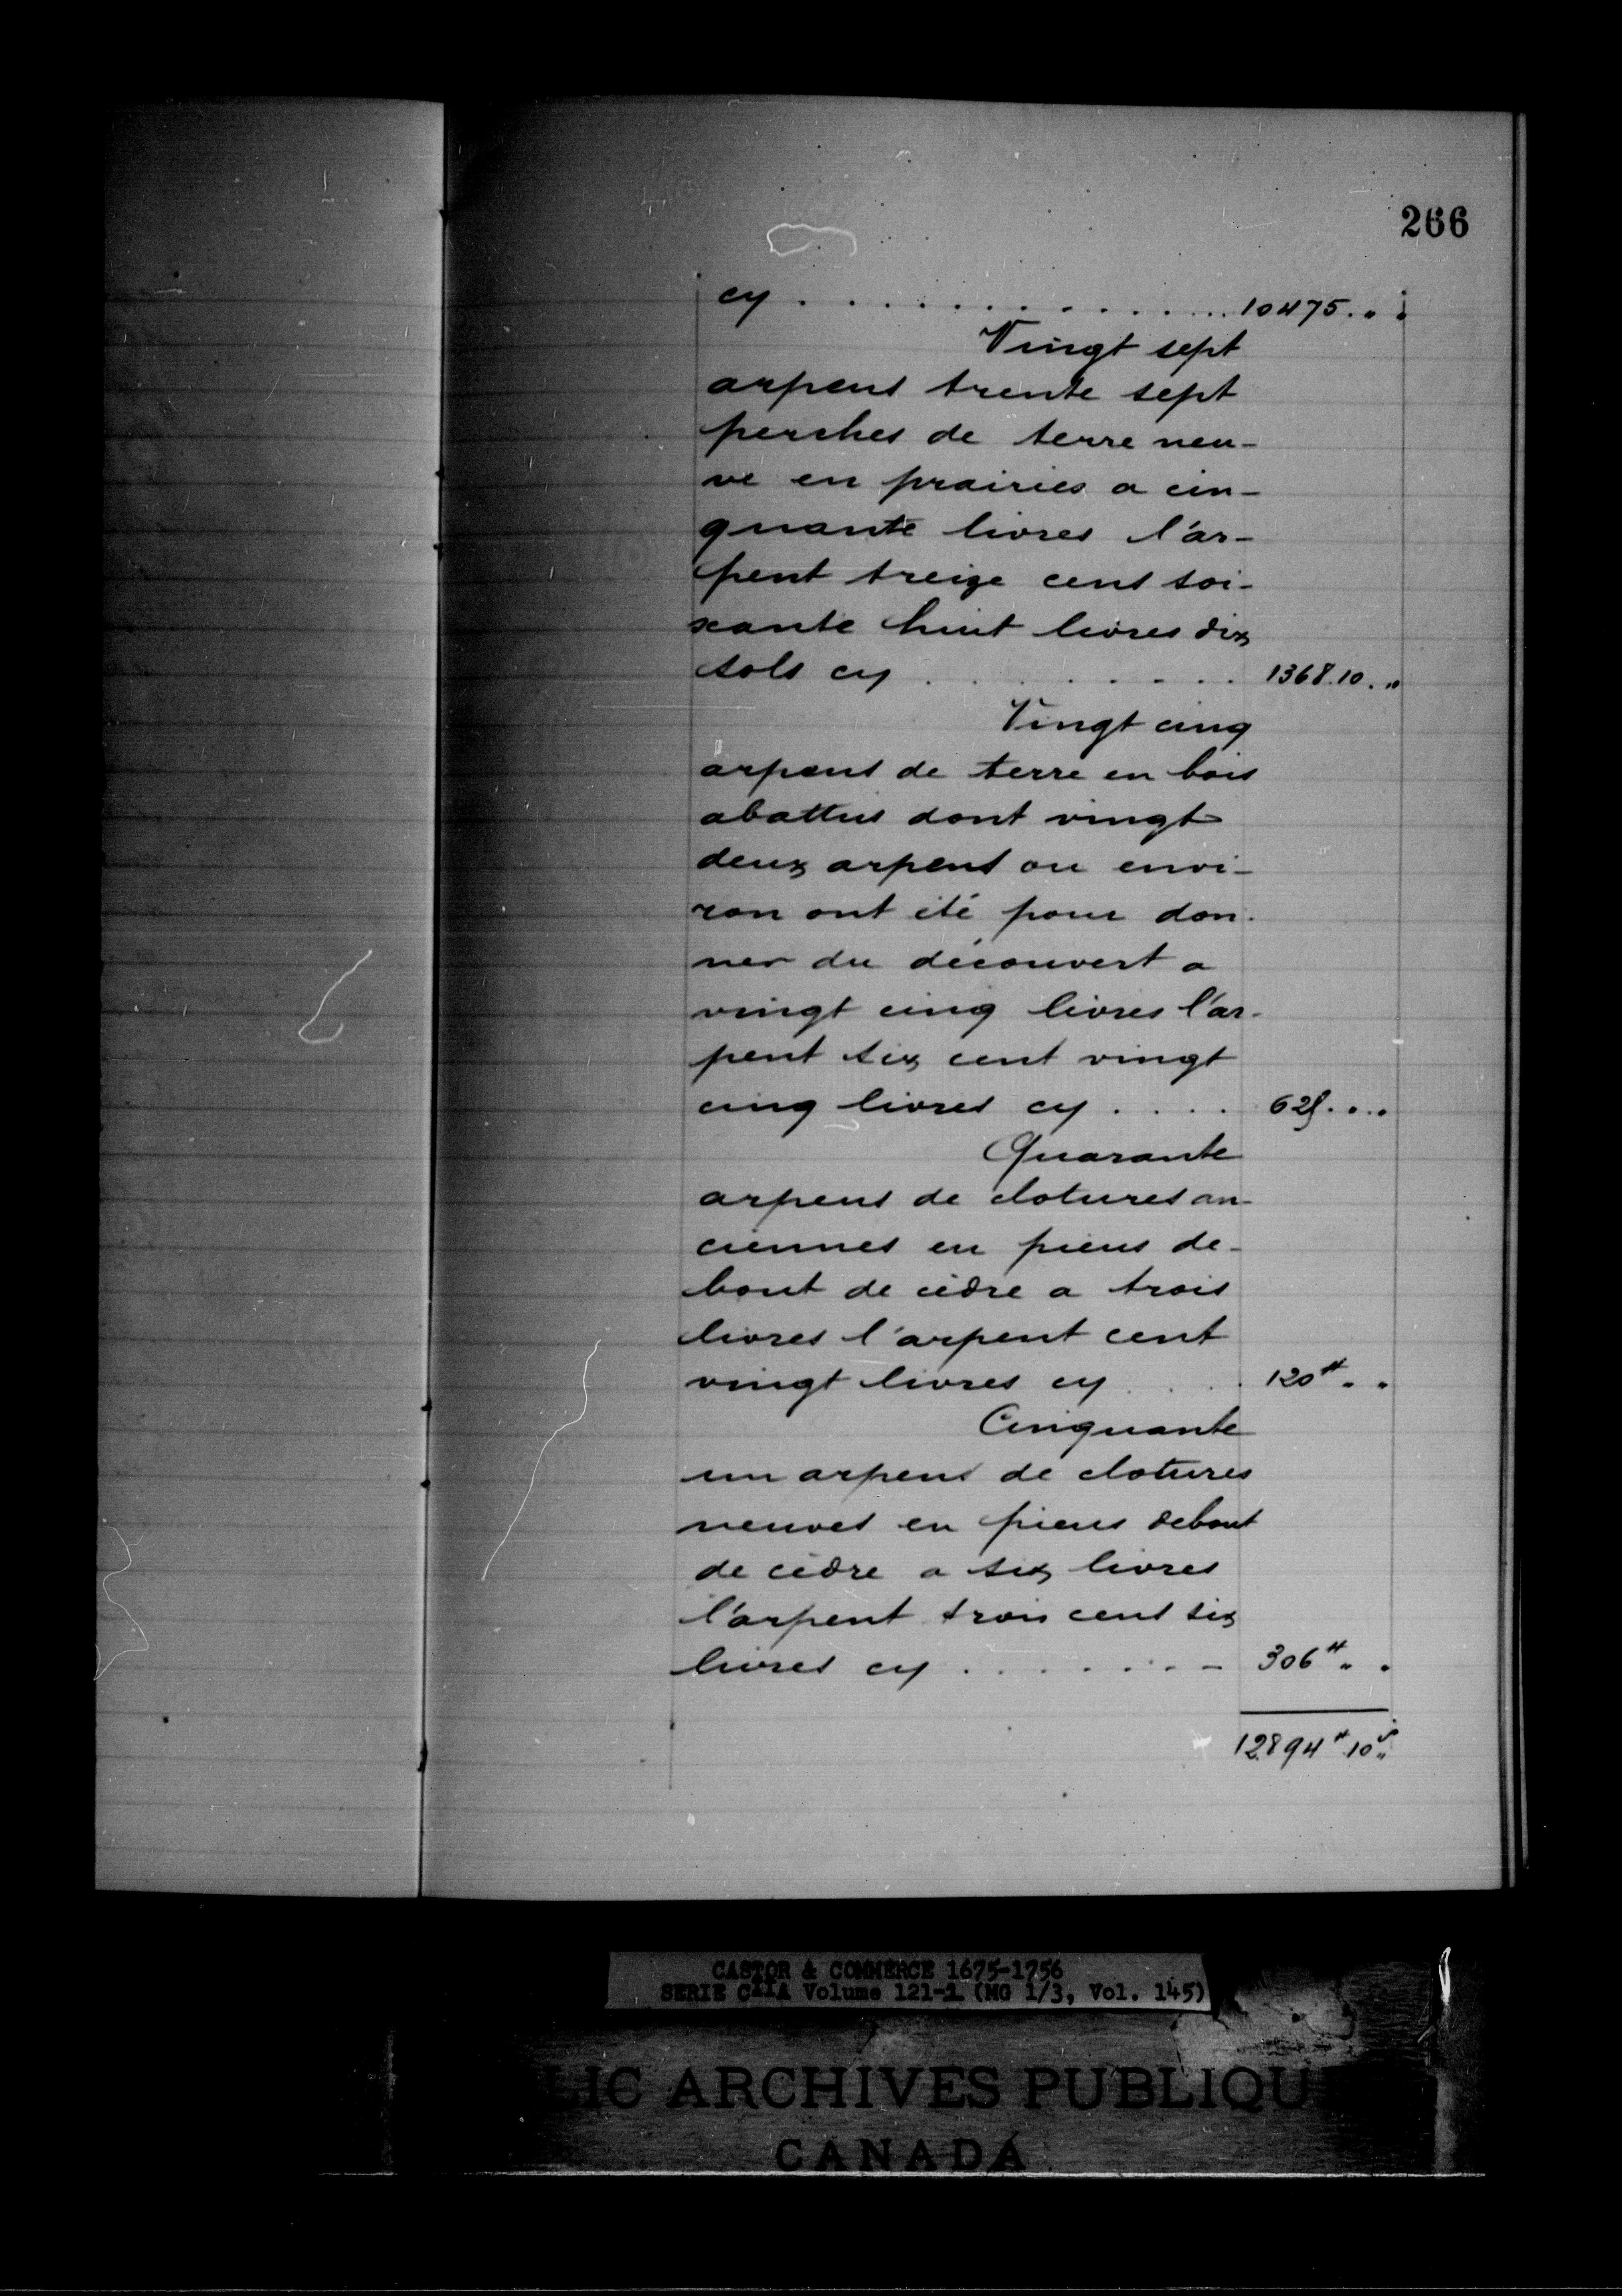 266
cy . . . . . . . . . . . . . . . 10475. „ „
Vingt sept
arpens trente sept
perches de terre neu-
ve en prairies a cin-
quante livres l'ar-
pent treize cent soi-
xante huit livres dix
sols cy . . . . . . . . . 1368.10. „
Vingt cinq
arpens de terre en bois
abattus dont vingt
deux arpens ou envi-
ron ont été pour don-
ner du découvert a
vingt cinq livres l'ar-
pent six cent vingt
cinq livres cy . . . . 625. „ „
Quarante
arpens de clotures an-
ciennes en pieus de-
bout de cèdre a trois
livres l'arpent cent
vingt livres cy . . . . 120# „ „
Cinquante
un arpens de clotures
neuves en pieus debout
de cèdre a six livres
l'arpent trois cent six
livres cy . . . . . . . - 306# „ „
12894# 10s „
CASTOR & COMMERCE 1675-1756
SERIE C11A Volume 121-1 (MG 1/3, Vol. 145)
LIC ARCHIVES PUBLIQU
CANADA